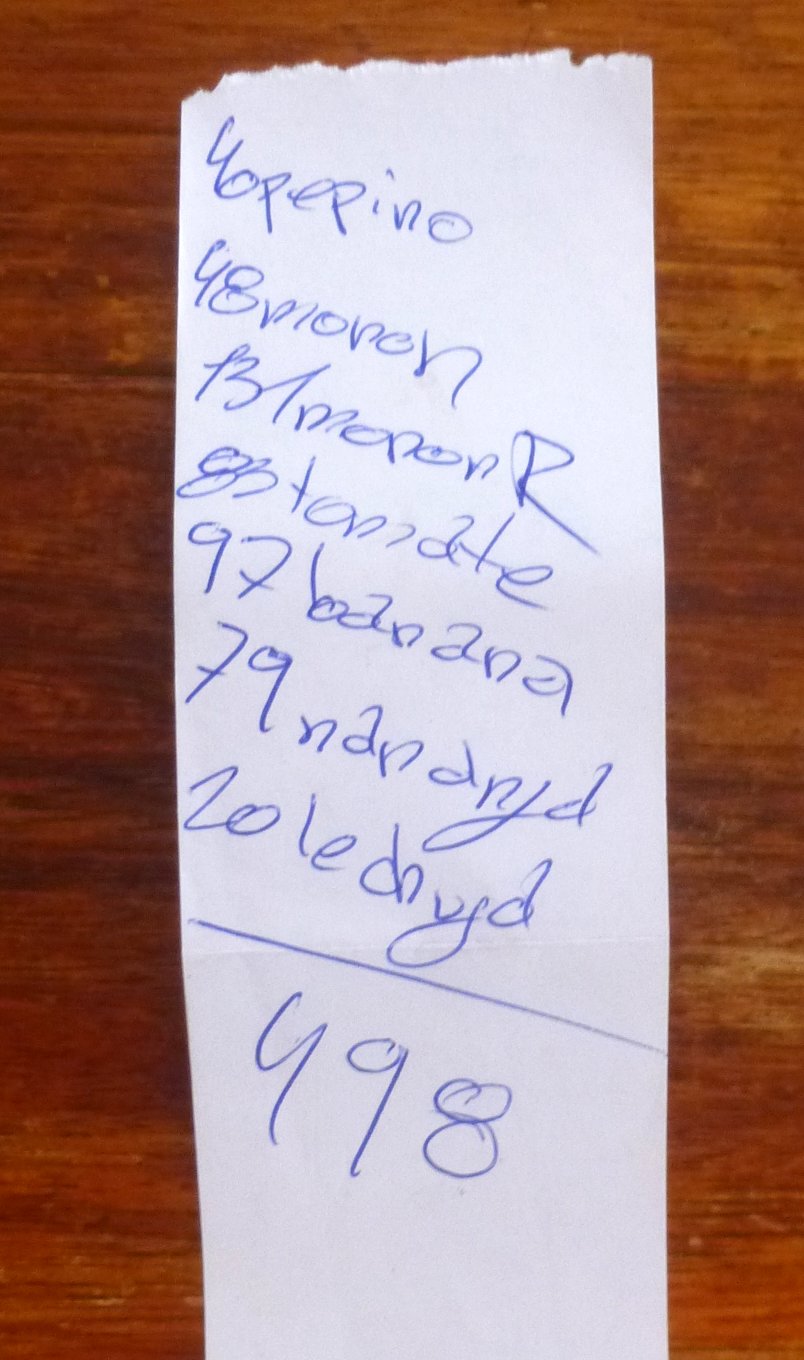 40 pepino
48 moron
131 moron R
83 tomate
97 banana
79 naranja
20 lechuga
498